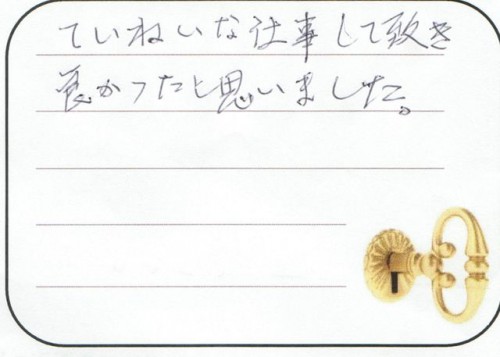 ていねいな仕事して致き
良かったと思いました。